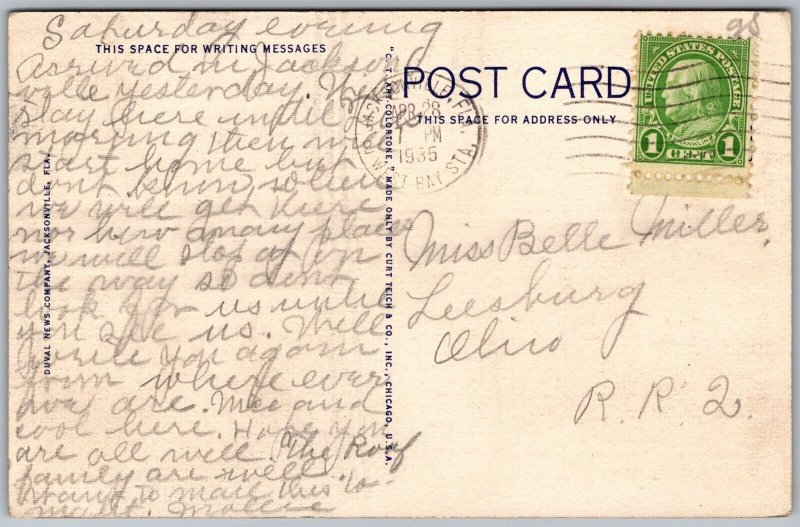 Saturday evening
THIS SPACE FOR WRITING MESSAGES
Arrived in Jackson
ville yesterday. Will
stay here until
morning then will
start home but
dont know when
we will get there
nor how many places
we will stop at on
the way so dont
look for us until
you see us. Will
write you again
from where ever
we are. Nice and
cool here. Hope you
are all well. The Roof
family are well.
Want to mail this to-
night. Mollie
DUVAL NEWS COMPANY, JACKSONVILLE, FLA.
"C. T. ART-COLORTONE," MADE ONLY BY CURT TEICH & CO., INC., CHICAGO, U.S.A.
POST CARD
THIS SPACE FOR ADDRESS ONLY
JACKSONVILLE, FLA.
APR 28
1 PM
1935
WEST BAY STA.
UNITED STATES POSTAGE
FRANKLIN
1 CENT 1
98
Miss Belle Miller,
Leesburg
Ohio
R. R. 2.